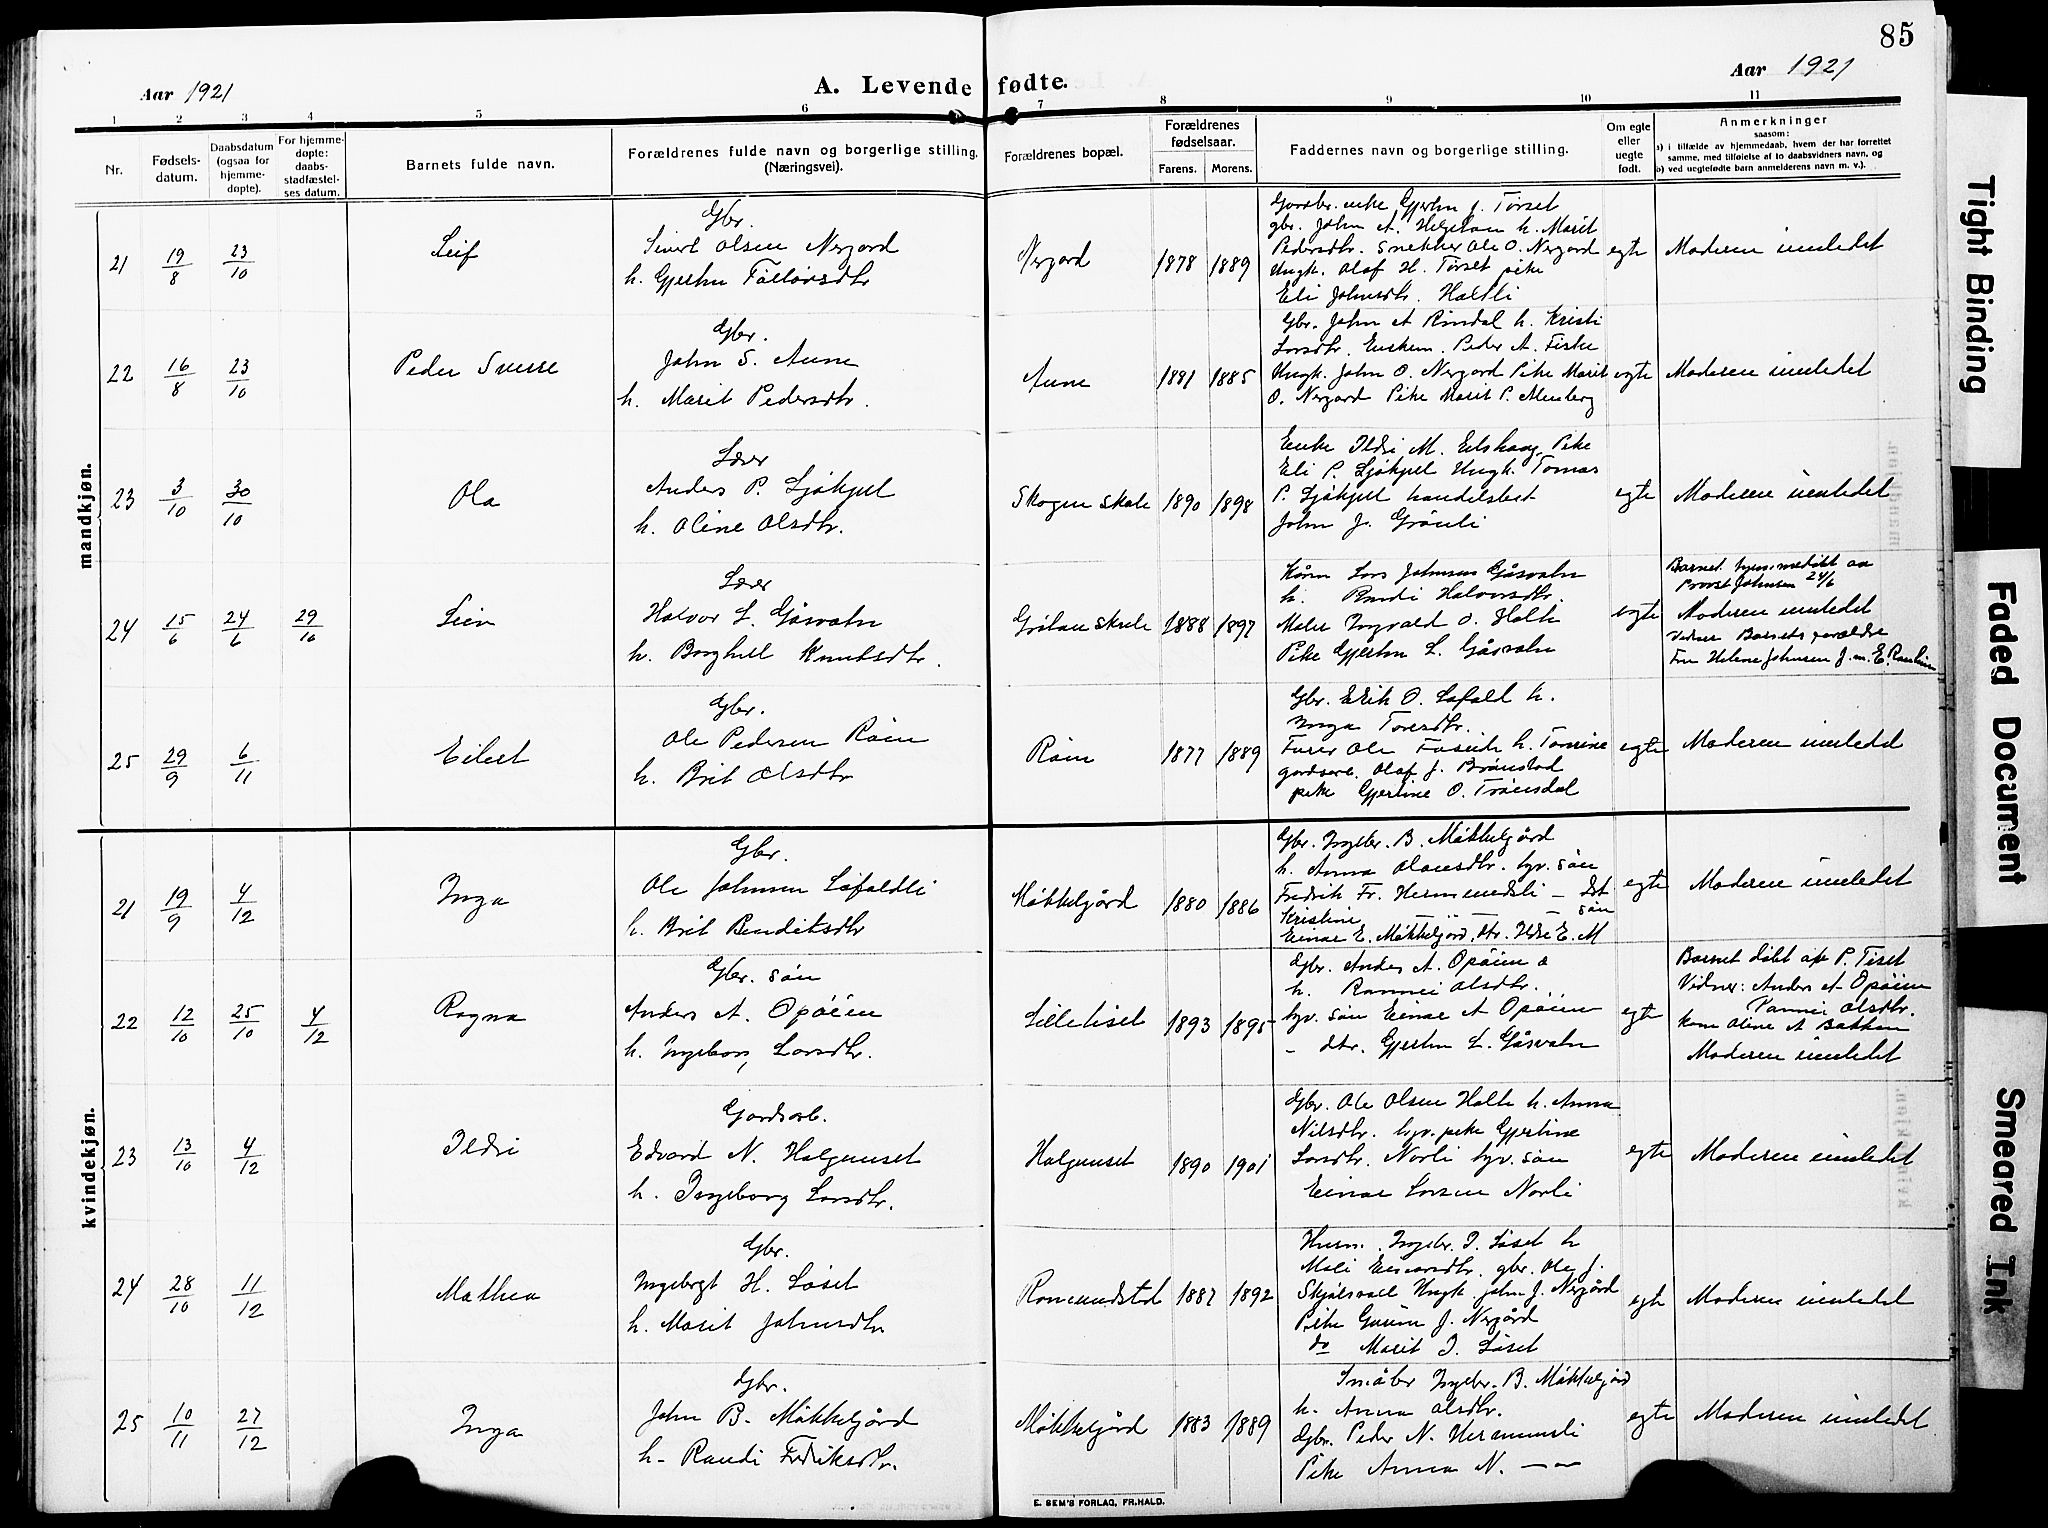 85
Aar 1921
A. Levende fødte.
Aar 1921
1 2 3 4 5 6 7 8 9 10 11
Nr.
Fødsels-
datum.
Daabsdatum
(ogsaa for
hjemme-
døpte).
For hjemme-
døpte:
daabs-
stadfæstel-
ses datum.
Barnets fulde navn.
Forældrenes fulde navn og borgerlige stilling.
(Næringsvei).
Forældrenes bopæl.
Forældrenes
fødselsaar.
Farens. Morens.
Faddernes navn og borgerlige stilling.
Om egte
eller
uegte
født.
Anmerkninger
saasom:
a) i tilfælde av hjemmedaab, hvem der har forrettet
samme, med tilføielse af to daabsvidners navn, og
b) ved uegtefødte barn anmelderens navn m. v.).
mandkjøn.
21 19/8 23/10 Leif
Gbr.
Sivert Olsen Nergard
h. Gjertru
Nergard 1878 1889
Gjertru J. Torset
gbr. John A. Helgetun h. Marit
Pedersdtr. Snekker Ole O. Nergard
Ungk. Olaf H. Torset pike
Eli Johnsdtr. Haltli
egte Moderen innledet
22 16/8 23/10 Peder Sverre
Gbr.
John S. Aune
h. Marit Pedersdtr.
Aune 1881 1885
Gbr. John A Rindal h. Kristi
Larsdtr. Enkem. Peder A. Fiske
Ungk. John O. Nergard Pike Marit
O. Nergard Pike Marit P.
egte Moderen innledet
23 3/10 30/10 Ola
Lærer
Anders P. Sjøhjel
h. Oline Olsdtr.
Skogen skole 1890 1898
Enke Ildri M. Pike
Eli P. Ungk. Tomas
P. handelsbest
John J. Grønli
egte Moderen innledet
24 15/6 24/6 29/10
Lærer
Halvor L. Gåsvatn
h. Borghild Knutsdtr.
Grötan skule 1888 1897
Lars Johnsen Gåsvatn
h. Randi Halvorsdtr.
Maler Ingvald O. Holte
Pike Gjertru L. Gåsvatn
egte
Barnet hjemmedøbt av
Provst Johnsen 24/6
Moderen innledet
Vidner Barnets forældre
Fru Helene Johnsen J.m. E.
25 29/9 6/11 Eilert
Gbr.
Ole Pedersen Röen
h. Brit Olsdtr
Röen 1877 1889
Gbr. Erik O. Løfald h.
Inga Toresdtr.
Ole h. Tomine
Olaf J. Brönstad
pike Gjertine O. Trönsdal
egte Moderen innledet
kvindekjøn.
21 19/9 4/12 Inga
Gbr.
Ole Johnsen Løfaldli
h. Brit Bendiksdtr
Møkkelgård 1880 1886
Gbr. Ingebr. B. Møkkelgård
h. Anna Olausdtr. gbr. sön
Fredrik Fr. Hermundsli — Dtr
Kristine — — sön
Einar E. Møkkelgård, dtr. Ildri E. M
egte Moderen innledet
22 12/10 25/10 4/12 Ragna
Gbr. sön
Anders A. Opöien
h. Ingeborg Larsdtr.
Lilletiset 1893 1895
Gbr. Anders A. Opöien &
h. Rannei Olsdtr.
gbr. sön Einar A Opöien
— dtr. Gjertru L. Gåsvatn
egte
Barnet døbt af P. Tiset
Vidner: Anders A Opöien
Rannei Olsdtr.
Kone Oline A Bakken
Moderen innledet
23 13/10 4/12 Ildri
Gardsarb.
Edvard N. Halgunset
h. Ingeborg Larsdtr.
Halgunset 1890 1901
Gbr. Ole Olsen Holte h. Anna
Nilsdtr. gbr. pike Gjertine
Larsdtr. Norli gbr. sön
Einar Larsen Norli
egte Moderen innledet
24 28/10 11/12 Mathea
Gbr.
Ingebrgt H. Löset
h. Marit Johnsdtr
Romundstad 1887 1892
Husm. Ingebr. I. Löset h
Mali Einarsdtr. gbr. Ole J.
Skjölsvold Ungk. John J. Nergård
Pike Gurun J. Nergård
do Marit I. Löset
egte Moderen innledet
25 10/11 27/12 Inga
Gbr.
John B. Møkkelgård
h. Randi Fredriksdtr.
Møkkelgård 1883 1889
Småbr Ingebr. B. Møkkelgård
h. Anna Olsdtr.
Gbr. Peder N. Hermunsli
Pike Anna N. — —
egte Moderen innledet
E. SEM'S FORLAG, FR.HALD.
Tight Binding
Faded Document
Smeared Ink